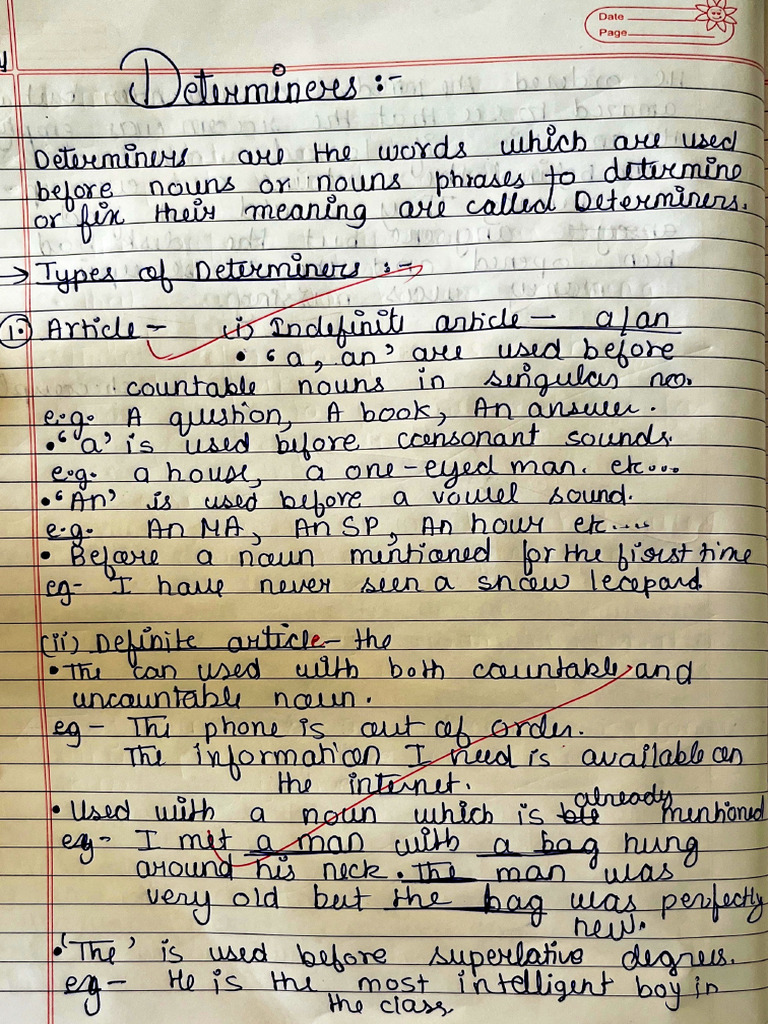 Date
Page
Determiners :-
Determiners are the words which are used
before nouns or nouns phrases to determine
or fix their meaning are called Determiners.
→ Types of Determiners :-
1. Article - (i) Indefinite article - a/an
• 'a, an' are used before
countable nouns in singular no.
e.g. A question, A book, An answer.
• 'a' is used before consonant sounds.
e.g. a house, a one-eyed man. etc...
• 'An' is used before a vowel sound.
e.g. An MA, An SP, An hour etc....
• Before a noun mentioned for the first time
eg- I have never seen a snow leopard
(ii) Definite article - the
• The can used with both countable and
uncountable noun.
eg - The phone is out of order.
The information I need is available on
the internet.
• Used with a noun which is already mentioned
eg - I met a man with a bag hung
around his neck. The man was
very old but the bag was perfectly
new.
• 'The' is used before superlative degree.
eg - He is the most intelligent boy in
the class